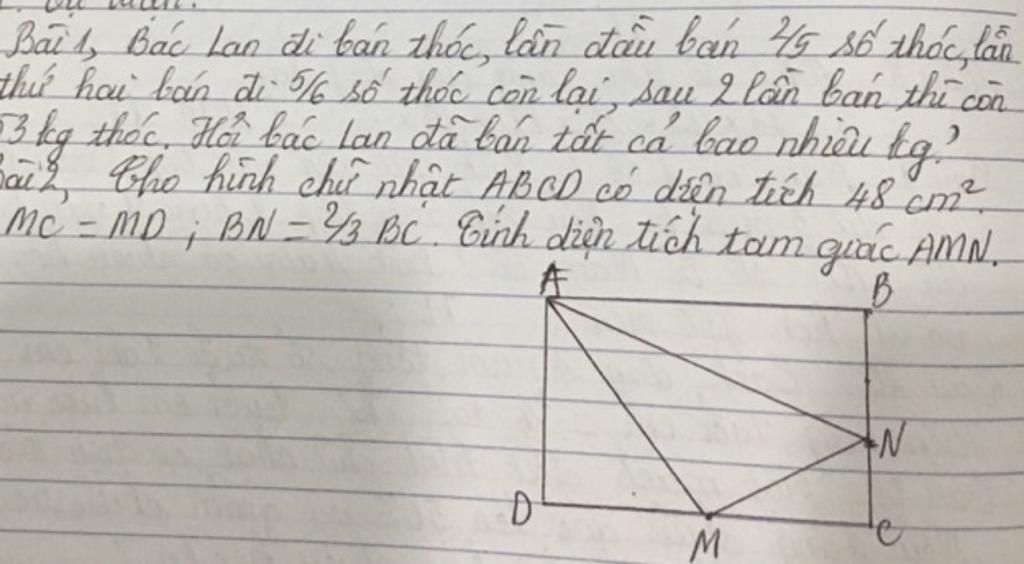 Bài 1, Bác Lan đi bán thóc, lần đầu bán 2/5 số thóc, lần
thứ hai bán đi 5/6 số thóc còn lại, sau 2 lần bán thì còn
53 kg thóc. Hỏi bác Lan đã bán tất cả bao nhiêu kg?
Bài 2, Cho hình chữ nhật ABCD có diện tích 48 cm².
MC = MD ; BN = 2/3 BC. Tính diện tích tam giác AMN.
A
B
N
D
M
C